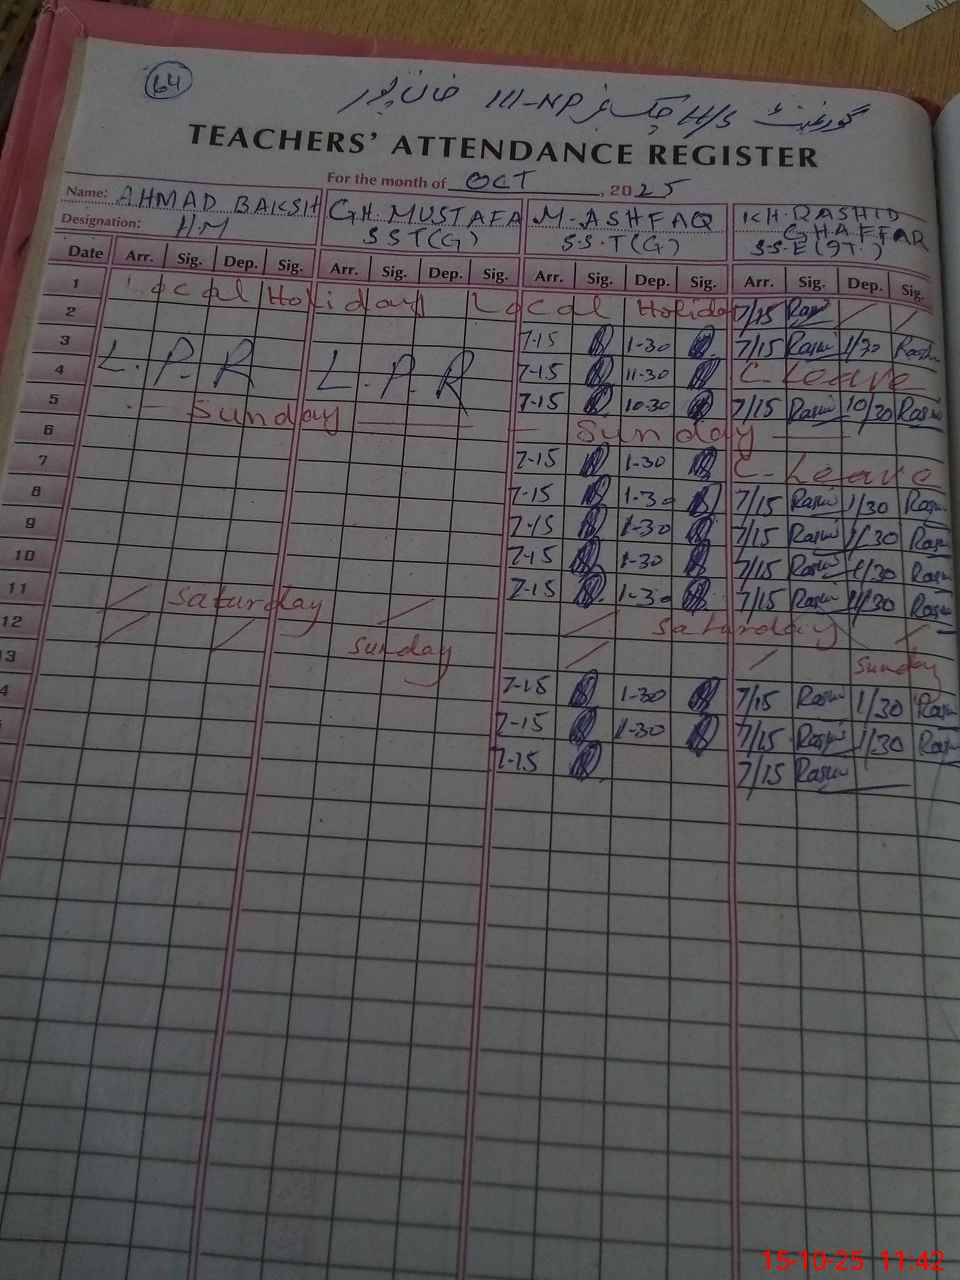 64
گورنمنٹ H/S چک نمبر 111-NP خان پور
TEACHERS' ATTENDANCE REGISTER
For the month of OCT, 2025
Name: AHMAD BAKSH GH. MUSTAFA M-ASHFAQ KH. RASHID GHAFFAR
Designation: H.M SST(G) S.S.T(G) S.S.E(IT.)
Date Arr. Sig. Dep. Sig. Arr. Sig. Dep. Sig. Arr. Sig. Dep. Sig. Arr. Sig. Dep. Sig.
1 Local Holiday Local Holiday 7/15
2 7-15 1-30 7/15 1/30
3 L.P.R L.P.R 7-15 11-30 C. Leave
4 7-15 10-30 7/15 10/30
5 Sunday Sunday
6 7-15 1-30 C-Leave
7 7-15 1-30 7/15 1/30
8 7-15 1-30 7/15 1/30
9 7-15 1-30 7/15 1/30
10 7-15 1-30 7/15 1/30
11 Saturday Saturday
12 Sunday Sunday
13 7-15 1-30 7/15 1/30
4 7-15 1-30 7/15 1/30
7-15 7/15
15-10-25 11:42